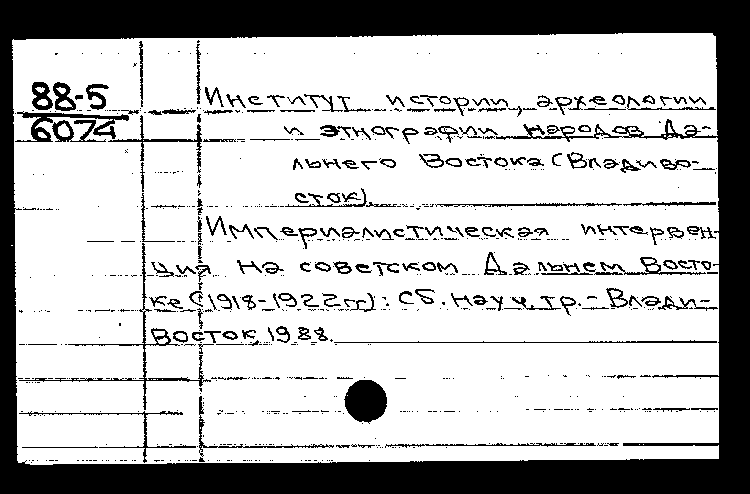 88-5
6074
Институт истории, археологии
и этнографии народов Да-
льнего Востока (Владиво-
сток).
Империалистическая интервен-
ция на советском Дальнем Восто-
ке (1918-1922гг): Сб. науч. тр. - Влади-
восток, 1988.